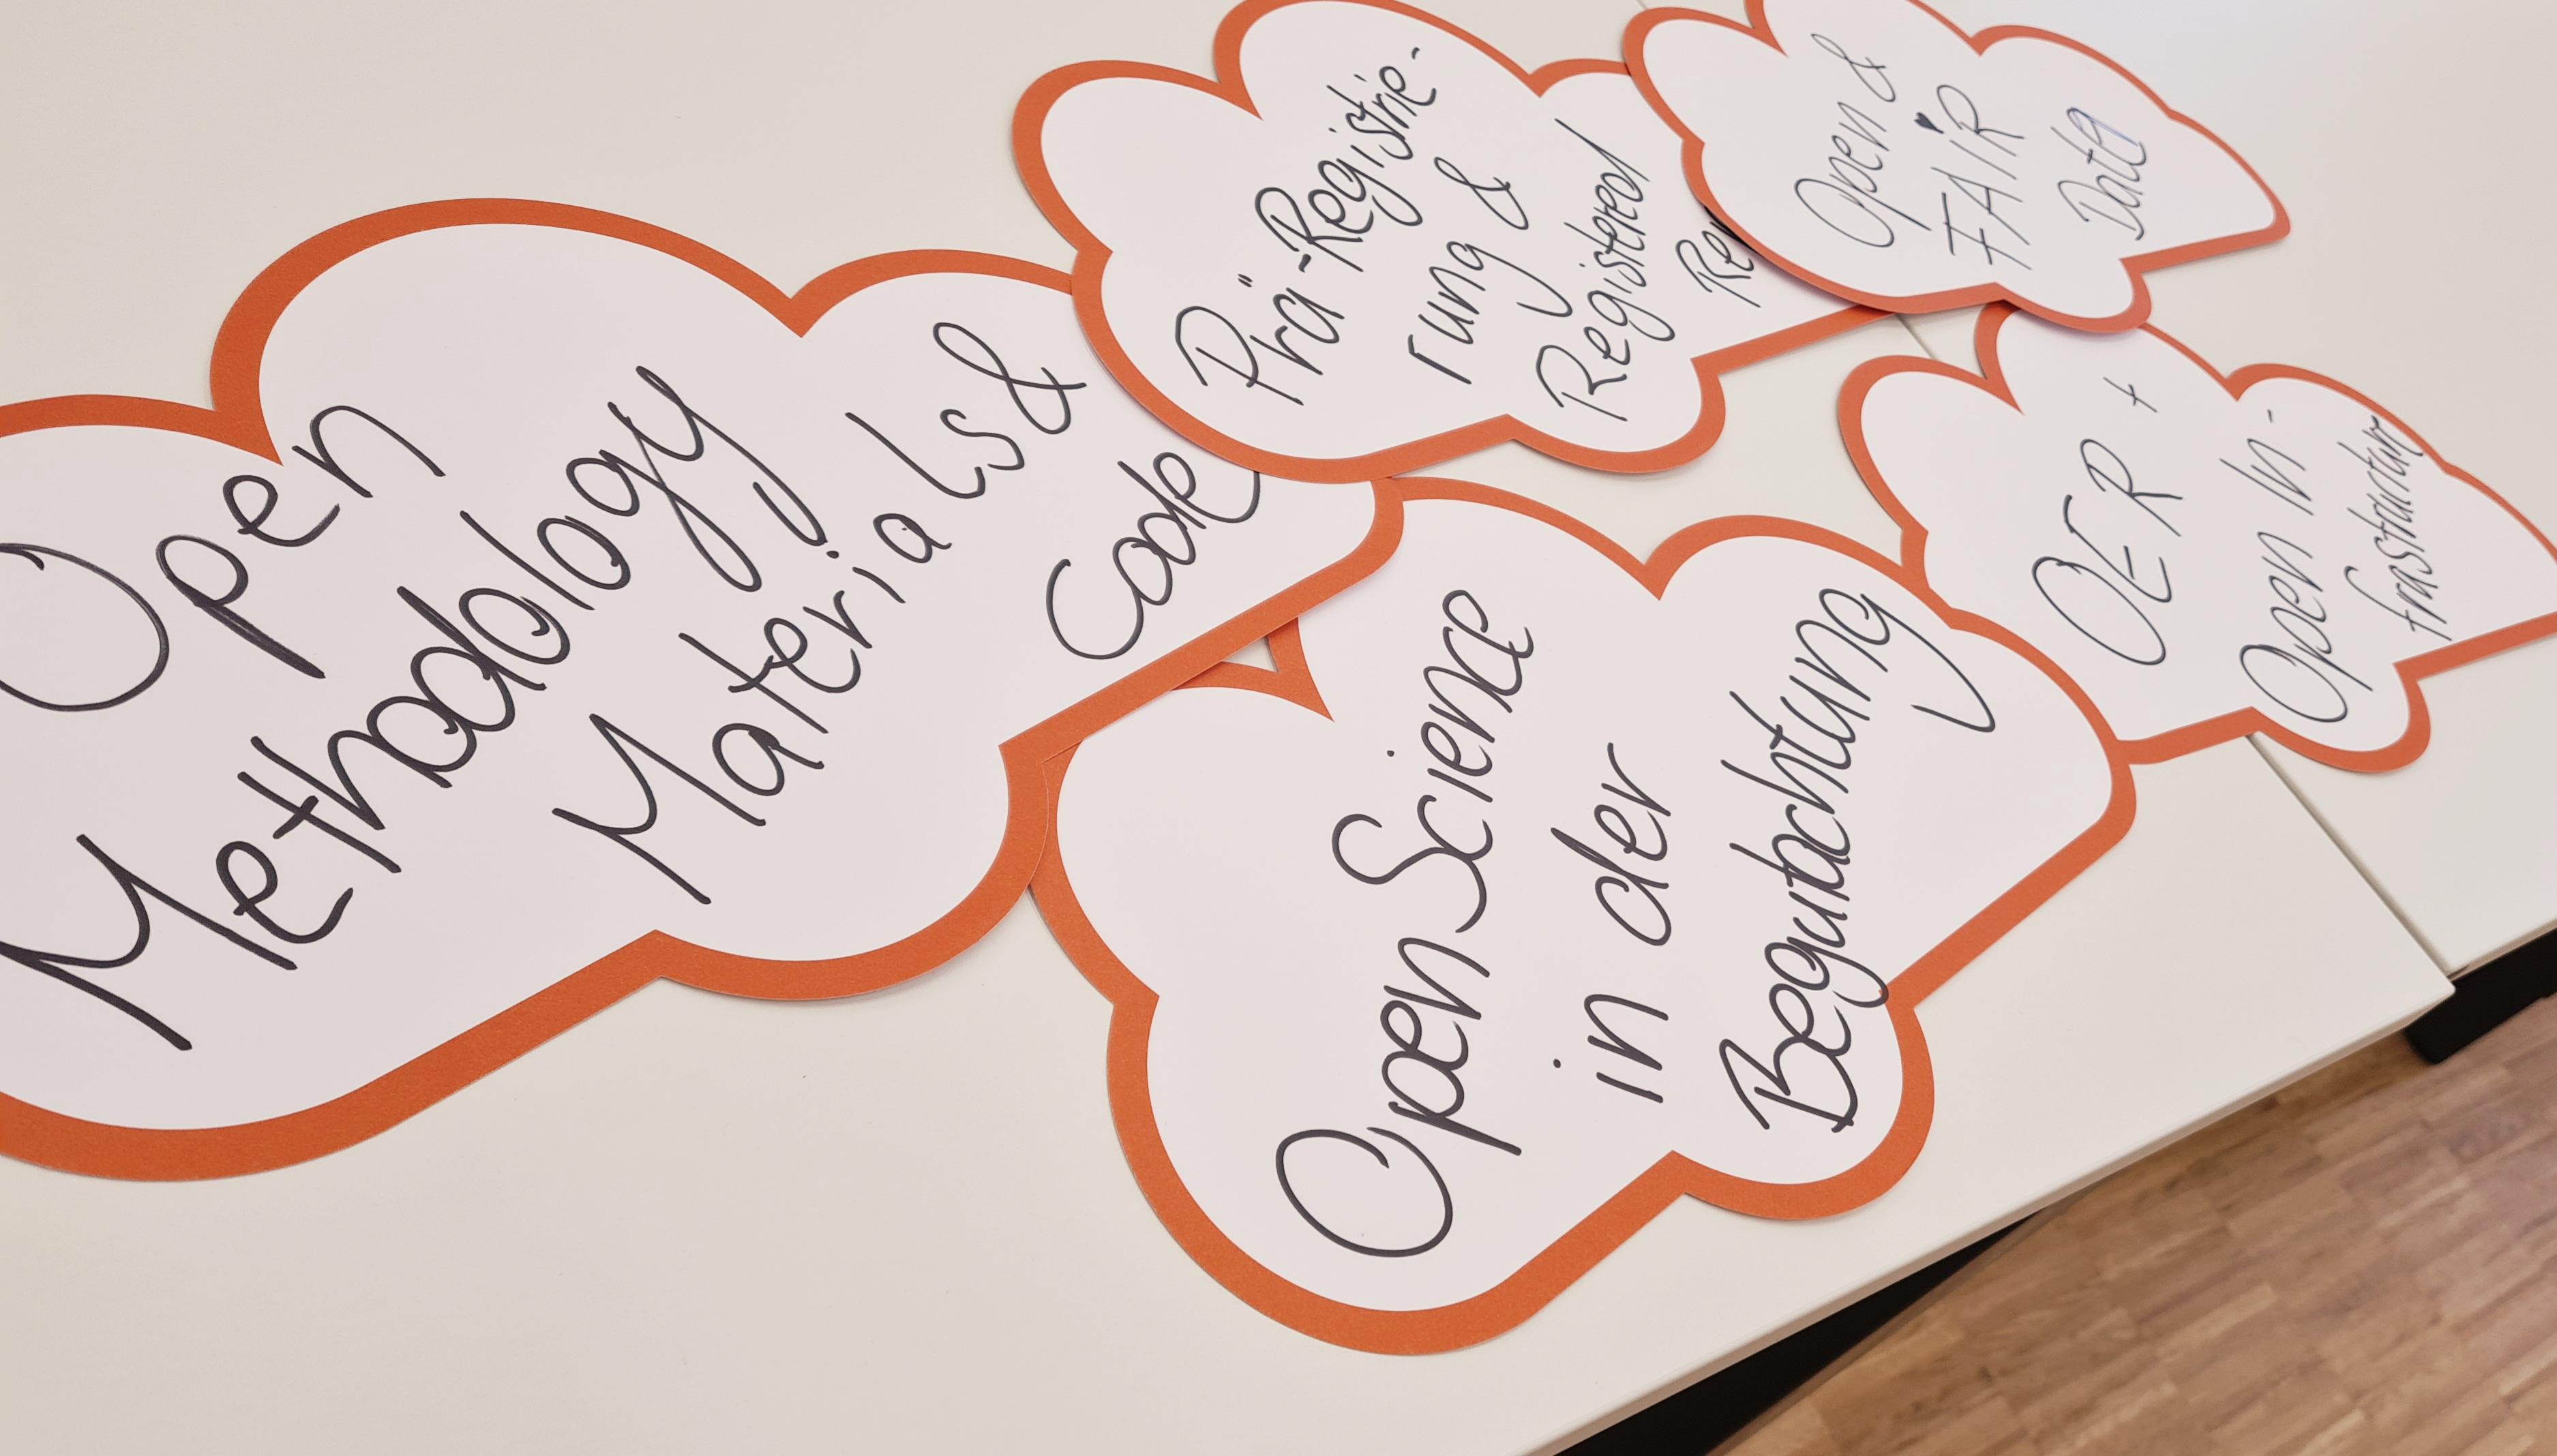 Open
Methodology
Materials &
Code
Prä-Registrie-
rung &
Registered
Re
Open &
FAIR
Data
Open Science
in der
Begutachtung
OER +
Open In-
frastruktur